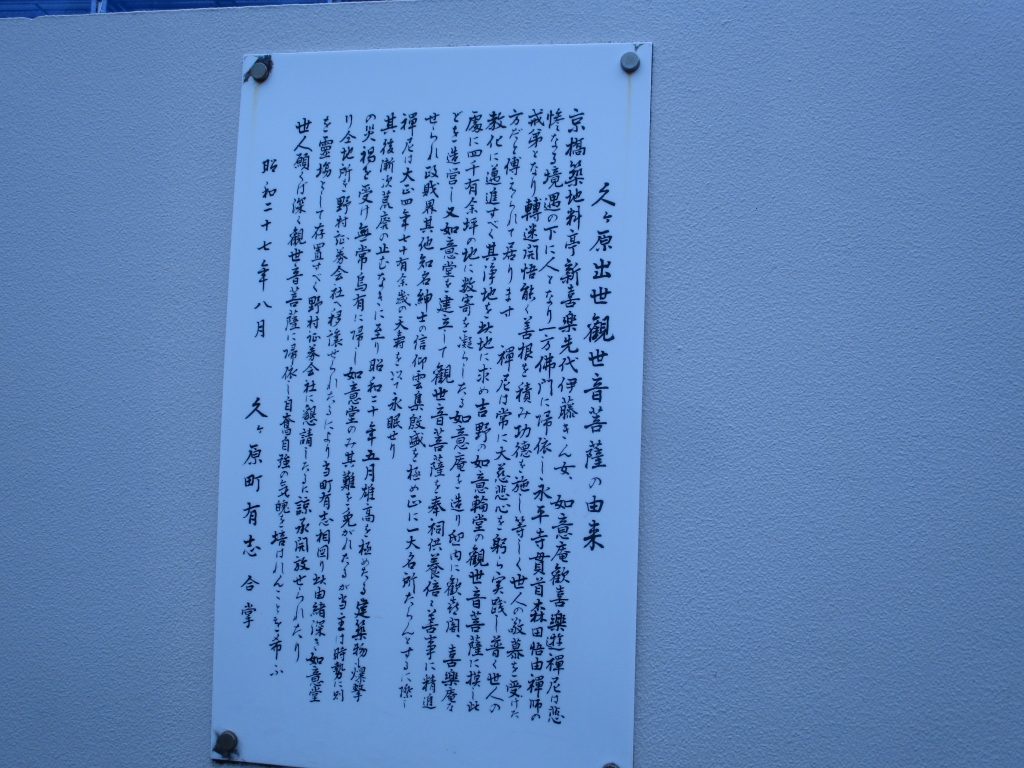 久ヶ原出世観世音菩薩の由来
京橋築地料亭新喜楽先代伊藤きん女、如意庵歓喜樂遊禪尼は悲
惨なる境遇の下に人となり一方佛門に帰依し永平寺貫首森田悟由禪師の
戒弟となり轉迷開悟能く善根を積み功德を施し等しく世人の敬慕を受けた
方だと傳えられて居ります 禪尼は常に大慈悲心を躬ら実践し普く世人の
教化に邁進すべく其浄地を此地に求め吉野の如意輪堂の観世音菩薩に摸し此
處に四千有余坪の地に数寄を凝らしたる如意庵を造り邸内に歓喜閣、喜樂庵な
どを造営し又如意堂を建立して観世音菩薩を奉祠供養倍々善事に精進
せられ政財界其他知名紳士の信仰雲集殷盛を極め正に一大名所たらんとするに際し
禪尼は大正四年七十有余歳の天壽を以て永眠せり
其後漸次荒廃の止むなきに至り昭和二十年五月雄高を極めたる建築物も爆撃
の災禍を受け無常烏有に帰し如意堂のみ其難を免がれたるが当主は時勢に則
り全地所を野村証券会社へ移譲せられたるにより当町有志相図り此由緒深き如意堂
を霊場として存置すべく野村証券会社に懇請したるに諒承開放せられたり
世人願くば深く観世音菩薩に帰依し自奮自強の気魄を培はれんことを希ふ
昭和二十七年八月 久ヶ原町有志 合掌